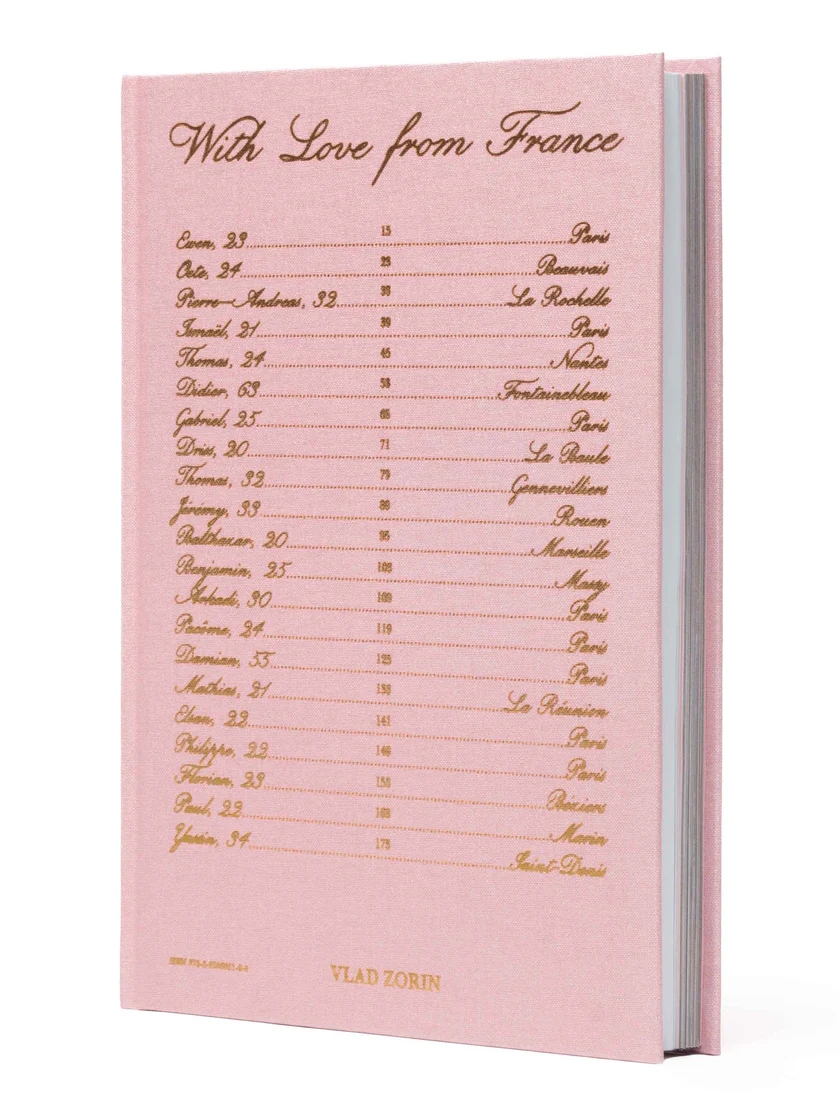 With Love from France
Ewen, 23 15 Paris
Oste, 24 23 Beauvais
Pierre—Andreas, 32 33 La Rochelle
Ismaël, 21 39 Paris
Thomas, 24 45 Nantes
Didier, 63 53 Fontainebleau
Gabriel, 25 65 Paris
Dries, 20 71 La Baule
Thomas, 32 79 Gennevilliers
Jérémy, 33 Rouen
Balthazar, 20 95 Marseille
Benjamin, 25 103 Massy
Arkadi, 30 109 Paris
Pacôme, 24 119 Paris
Damian, 55 125 Paris
Mathias, 21 133 La Réunion
Elsan, 22 141 Paris
Philippe, 22 Paris
Florian, 23 Béziers
Paul, 22 163 Marin
Yassin, 34 175 Saint-Denis
ISBN
VLAD ZORIN